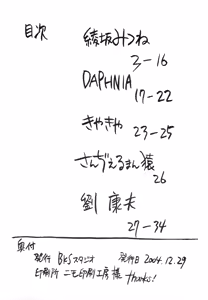 目次
綾坂みつね
3-16
DAPHNIA
17-22
きやきや
23-25
さんぢぇるまん猿
26
劉 康夫
27-34
奥付
発行 BKSスタジオ 発行日 2004.12.29
印刷所 ニモ印刷工房様 thanks!